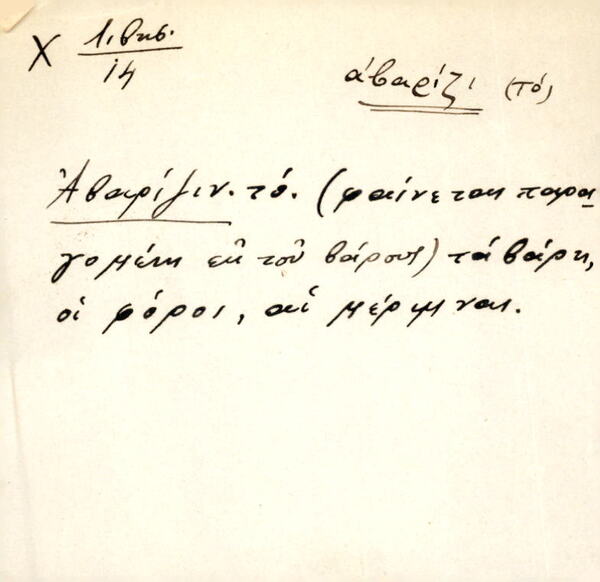 Χ Λιβησ.
14
ἀβαρίζι (τό)
Ἀβαρίζιν. τό. (φαίνεται παρα-
γομένη ἐκ τοῦ βάρους) τά βάρη,
οἱ φόροι, αἱ μέριμναι.